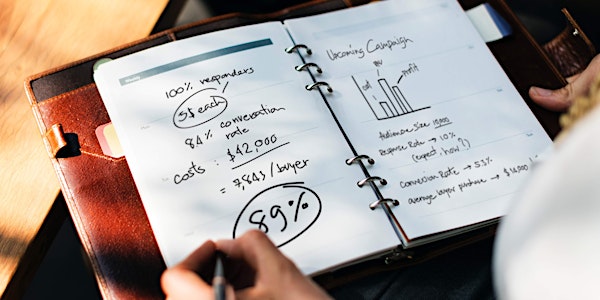 100% responders
5$ each
84% conversation rate
costs : $42,000
= 7,843/buyer
89%
Upcoming Campaign
Profit
Audience size 10,000
Response Rate → 10%
(expect. how!)
conversion Rate → 53%
average buyer purchase → $14,000